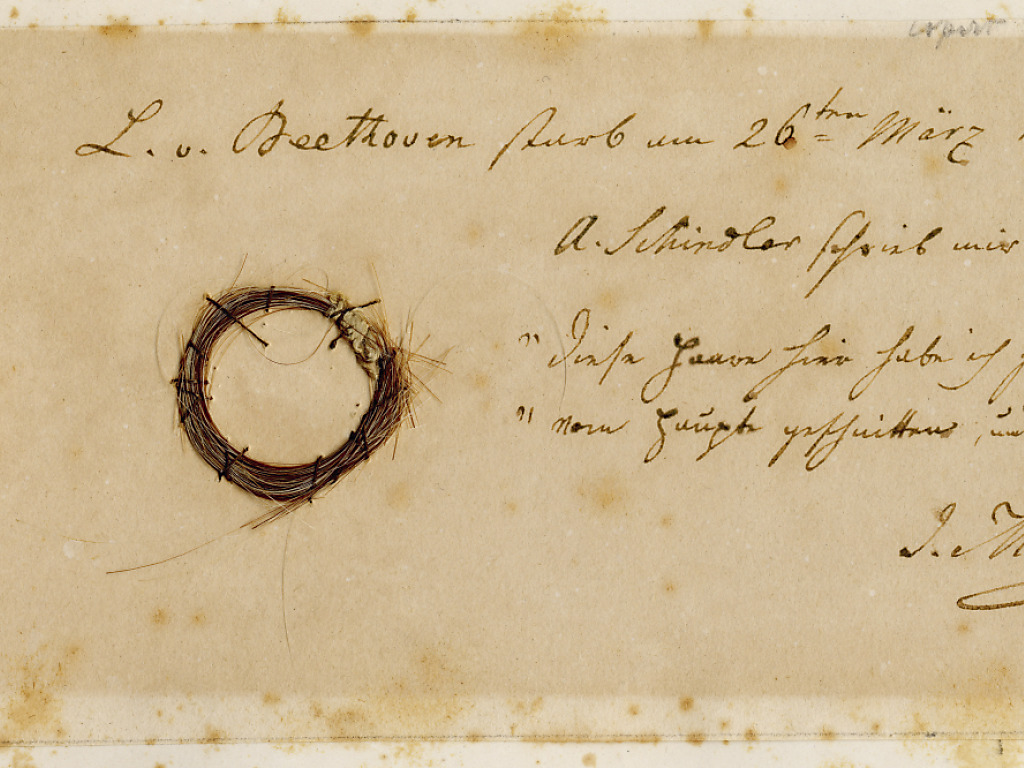 L. v. Beethoven starb am 26ten März
A. Schindler schrieb mir
" Diese Haare hier habe ich
" vom Haupte geschnitten,
J. M